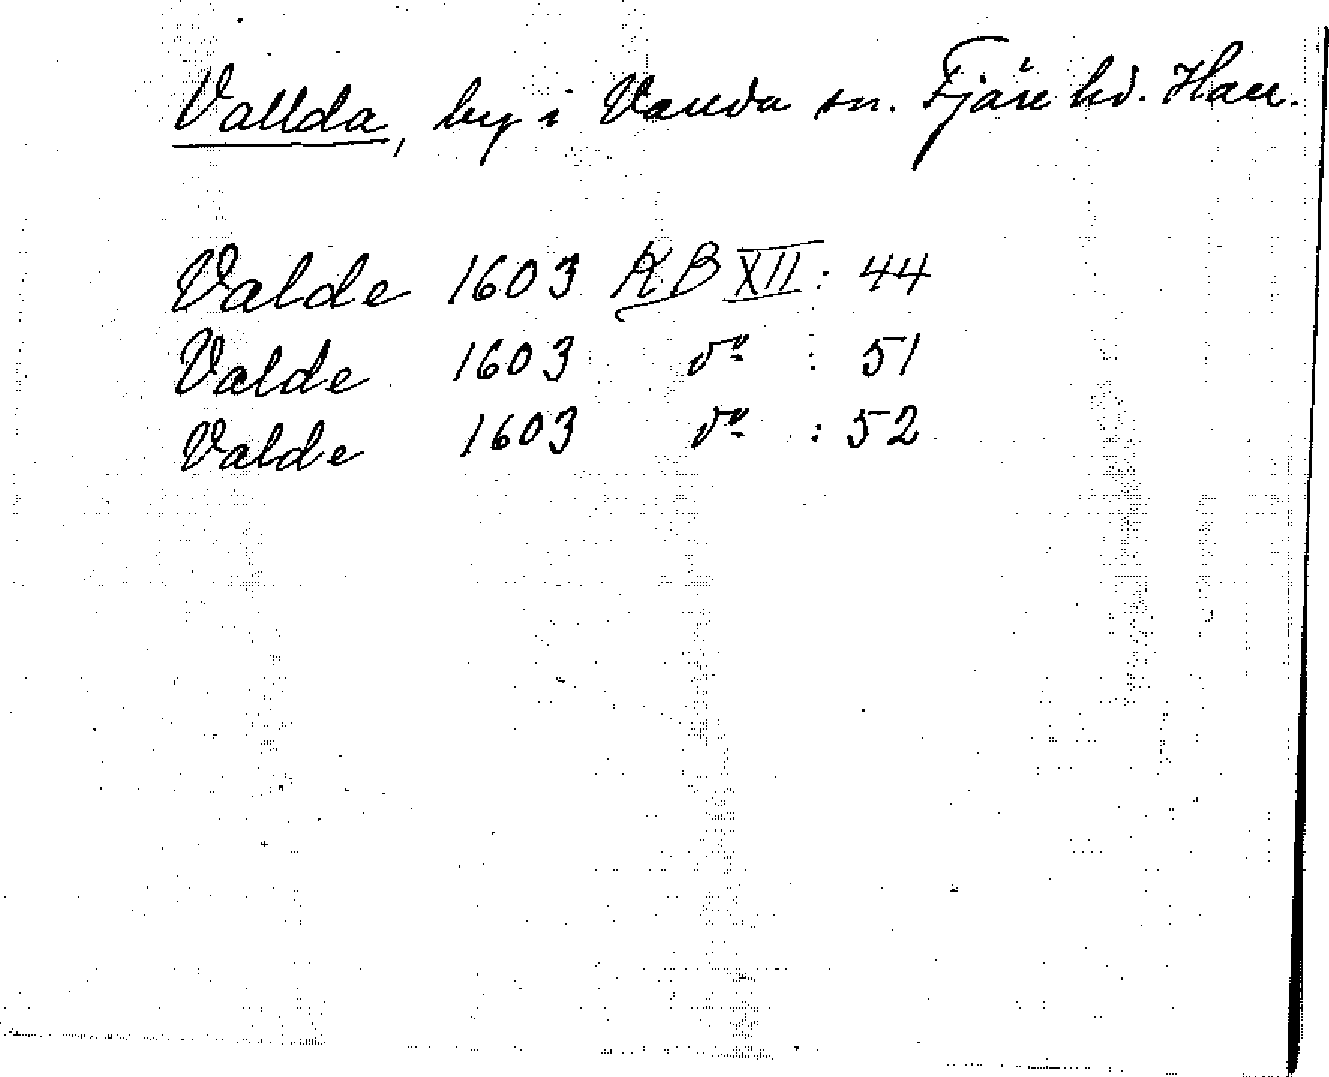 Vallda, by i Vallda sn. Fjäre hd. Hall.
Valde 1603 RB XII: 44
Valde 1603 do : 51
Valde 1603 do : 52